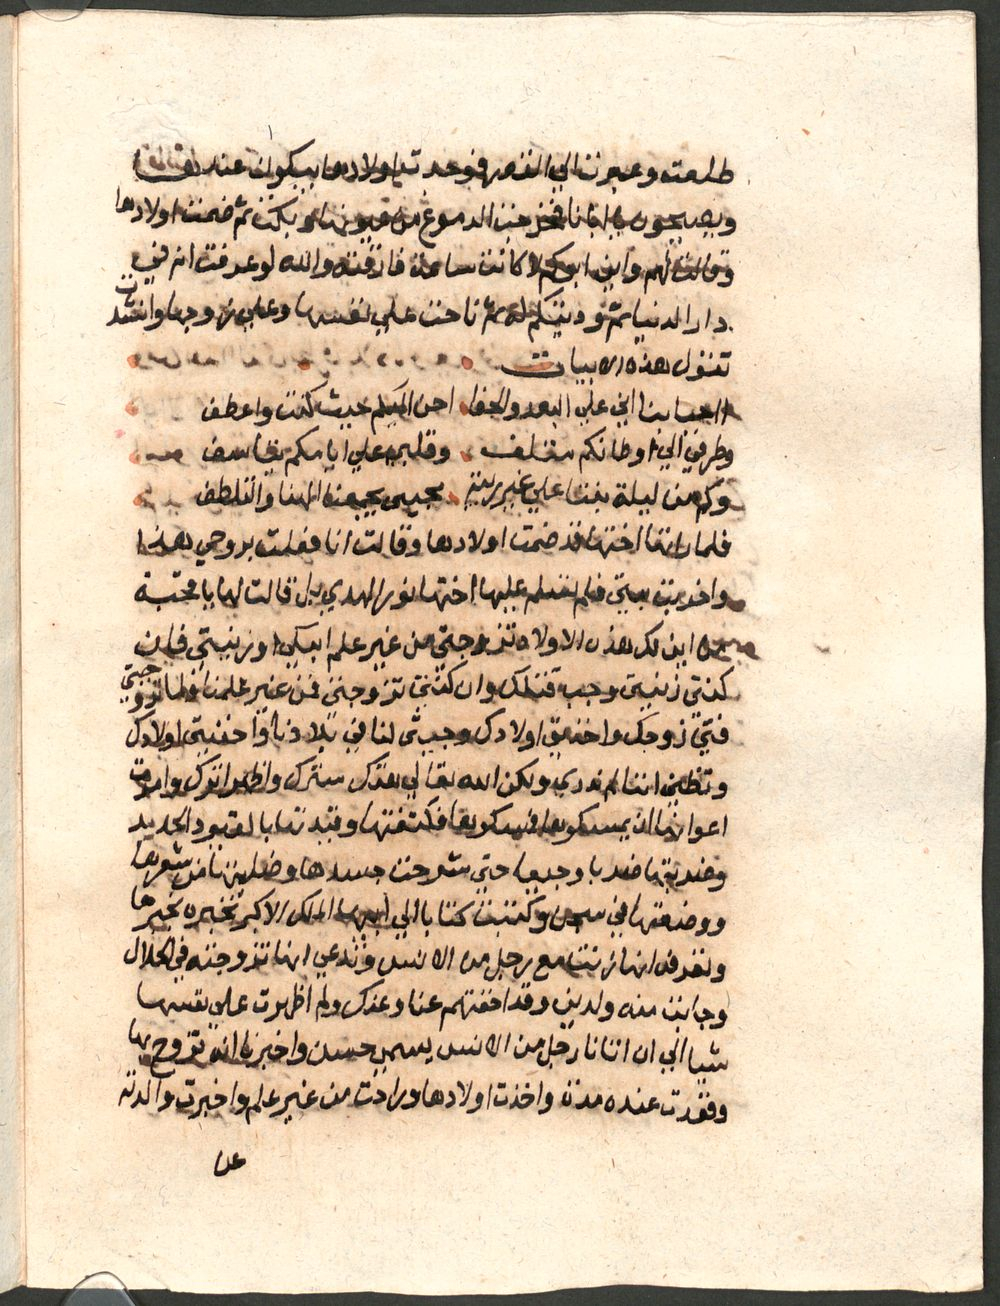 طلعت وعبرت الي القصر فوجدت اولادها يبكون عندها
ويصيحون يا ابانا فخرجت الدموع من عيونها وبكت ثم ضمت اولادها
وقالت لهم واين ابوكم لا كانت ساعة فارقته والله لو عرفت انه في
دار الدنيا ثم وديتكم له ثم ناحت علي نفسها وعلي زوجها وانشدت
تقول هذه الابيات
احبابنا اني علي البعد والجفا احن اليكم حيث كنت واعطف
وطرفي الي اوطانكم متلف وقلبي علي ايامكم يتاسف
وكم من ليلة بتنا علي غير ريبة محبين يجمعنا الهنا والتلطف
فلما راتها اختها قد ضمت اولادها وقالت انا فعلت بروحي هذا
واخربت بيتي فلم تسلم عليها اختها نور الهدي بل قالت لها يا قحبة
من اين لك هذه الاولاد تزوجتي من غير علم ابيكي او زنيتي فان
كنتي زنيتي وجب قتلك وان كنتي تزوجتي من غير علمنا فلما تزوجتي
فتي زوجك واخذتي اولادك وجيتي لنا في بلادنا واخفيتي اولادك
وتظني اننا لم ندري ولكن الله تعالي هتك سترك واظهر امرك وامرت
اعوانها ان يمسكوها فمسكوها فكتفتها وقيدتها بالقيود الحديد
وضربتها ضربا وجيعا حتي شرحت جسدها وصلبتها من شعرها
ووضعتها في سجن وكتبت كتابا الي ابيها الملك الاكبر تخبره بخبرها
وتعرفه انها زنت مع رجل من الانس وتدعي انها تزوجته في الحلال
وجابت منه ولدين وقد اخفتهم عنا وعنك ولم اظهرت علي نفسها
شيا الي ان اتانا رجل من الانس يسمي حسن واخبرنا انه تزوج بها
وقعدت عنده مدة واخذت اولادها وراحت من غير علم واخبرت والدته
عن